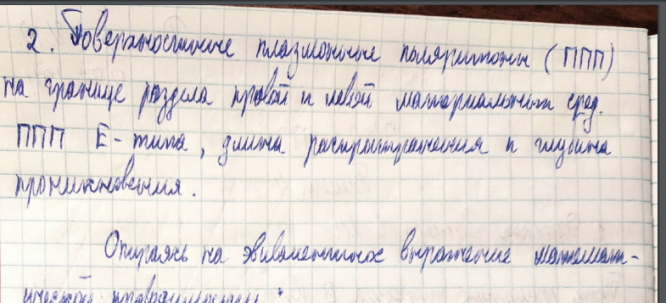 2. Поверхностные плазмонные поляритоны (ППП)
на границе раздела правой и левой материальных сред.
ППП Е-типа, длина распространения и глубина
проникновения.
Опираясь на эквивалентное выражение математ-
ической